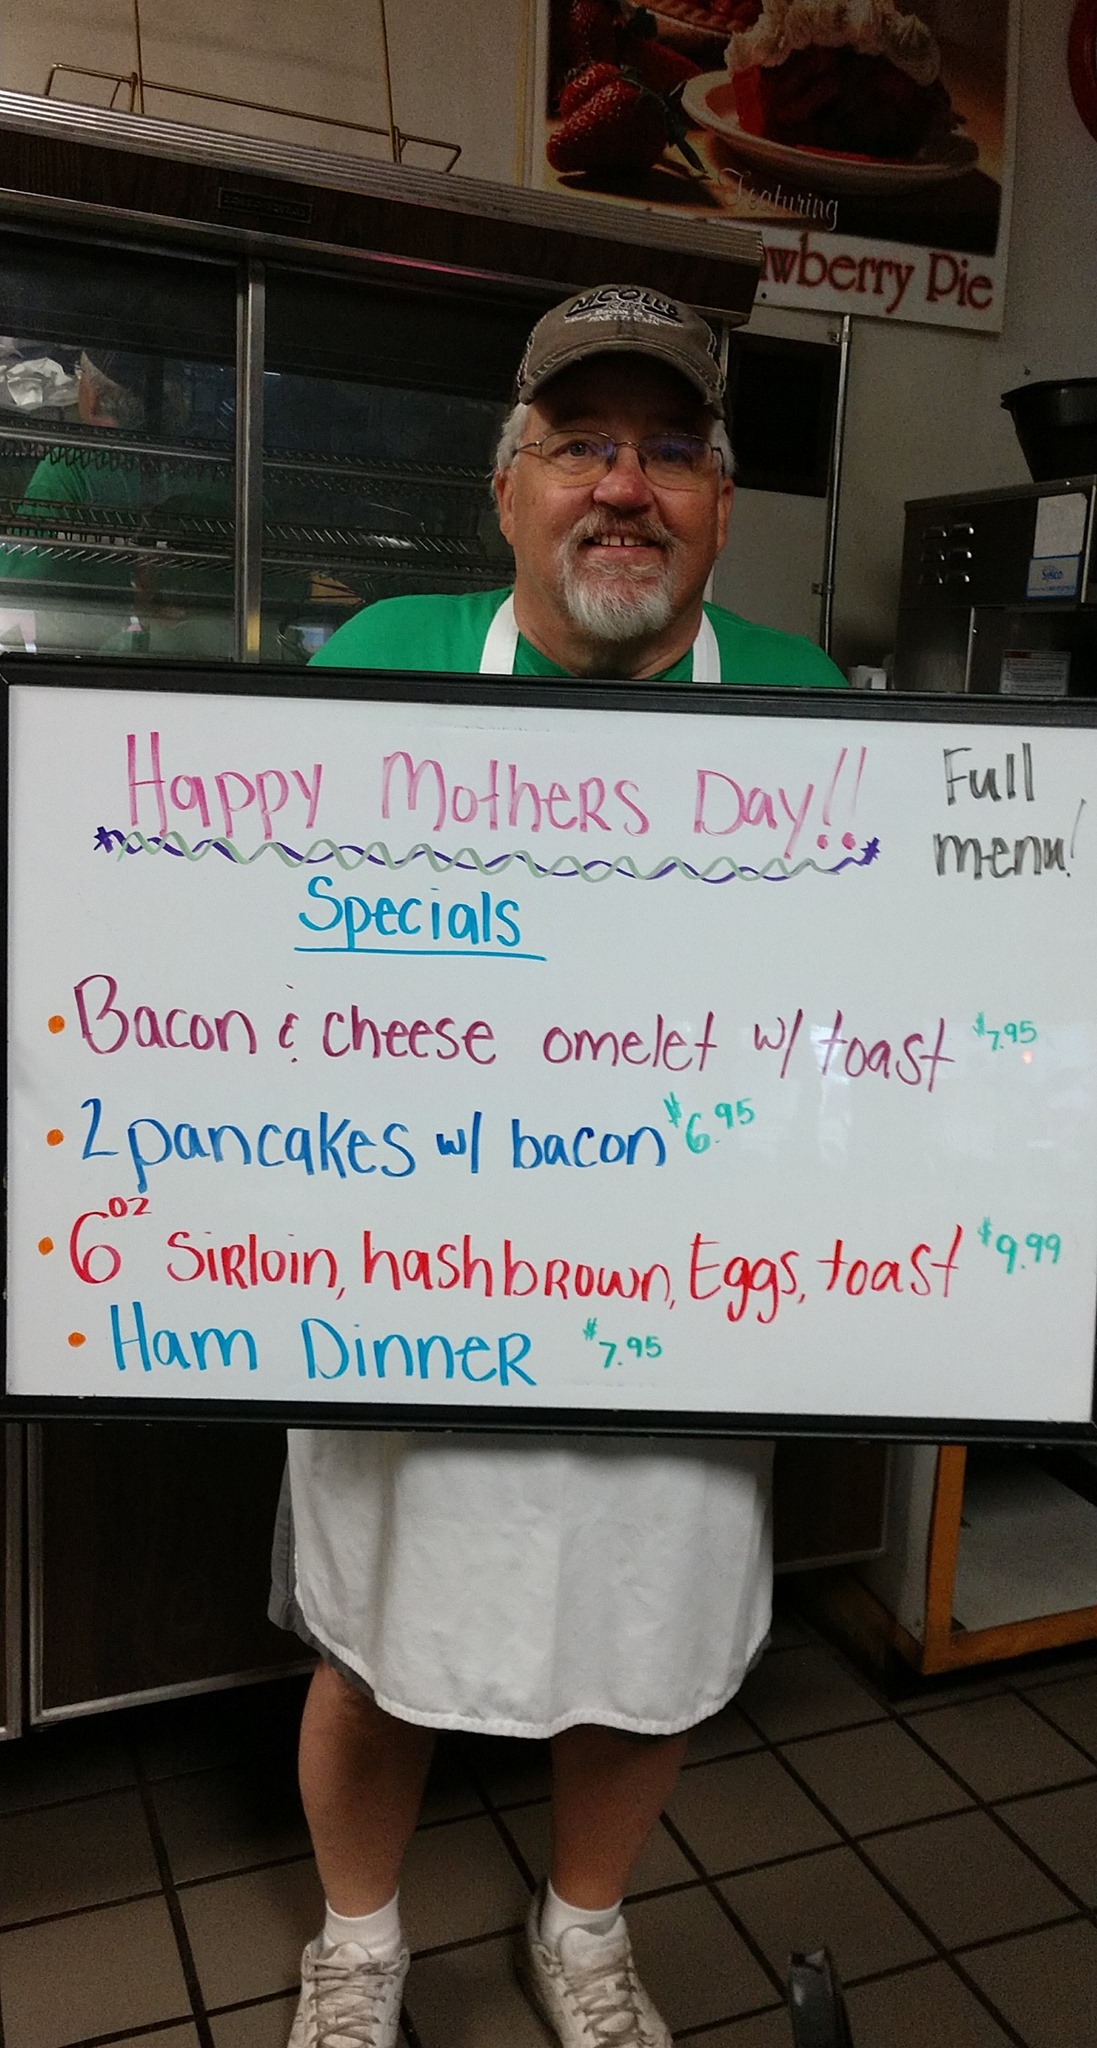 Featuring
Strawberry Pie
NICOLLE
Sysco
Happy Mothers Day!!
Full
menu!
Specials
• Bacon & cheese omelet w/ toast $7.95
• 2 pancakes w/ bacon $6.95
• 6 oz Sirloin, hashbrown, Eggs, toast $9.99
• Ham Dinner $7.95